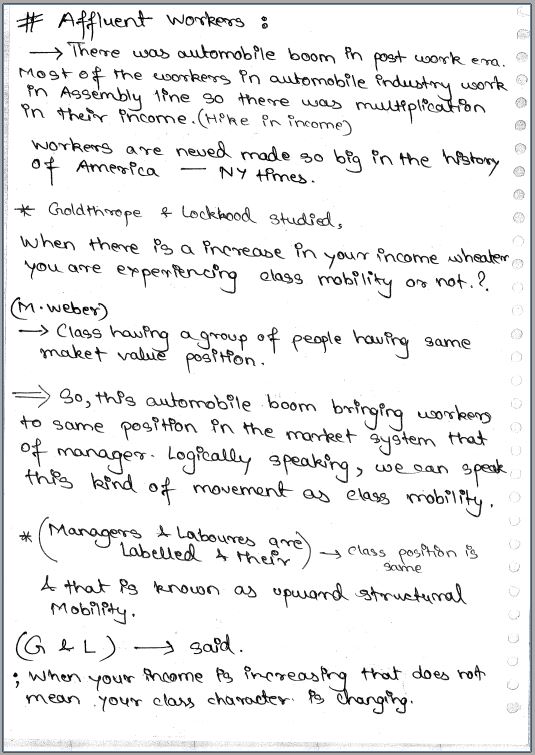 # Affluent workers :
→ There was automobile boom in post work era.
Most of the workers in automobile industry work
in Assembly line so there was multiplication
in their income. (Hike in income)
workers are neved made so big in the history
of America — NY times.
* Goldthrope & Lockhood studied,
when there is a increase in your income wheater
you are experiencing class mobility or not.?
(M. weber)
→ Class having a group of people having same
maket value position.
⇒ So, this automobile boom bringing workers
to same position in the market system that
of manager. Logically speaking, we can speak
this kind of movement as class mobility.
* (Managers & Laboures are
Labelled & their) → class position is
same
& that is known as upward structural
Mobility.
(G & L) → said.
; when your income is increasing that does not
mean your class character is changing.